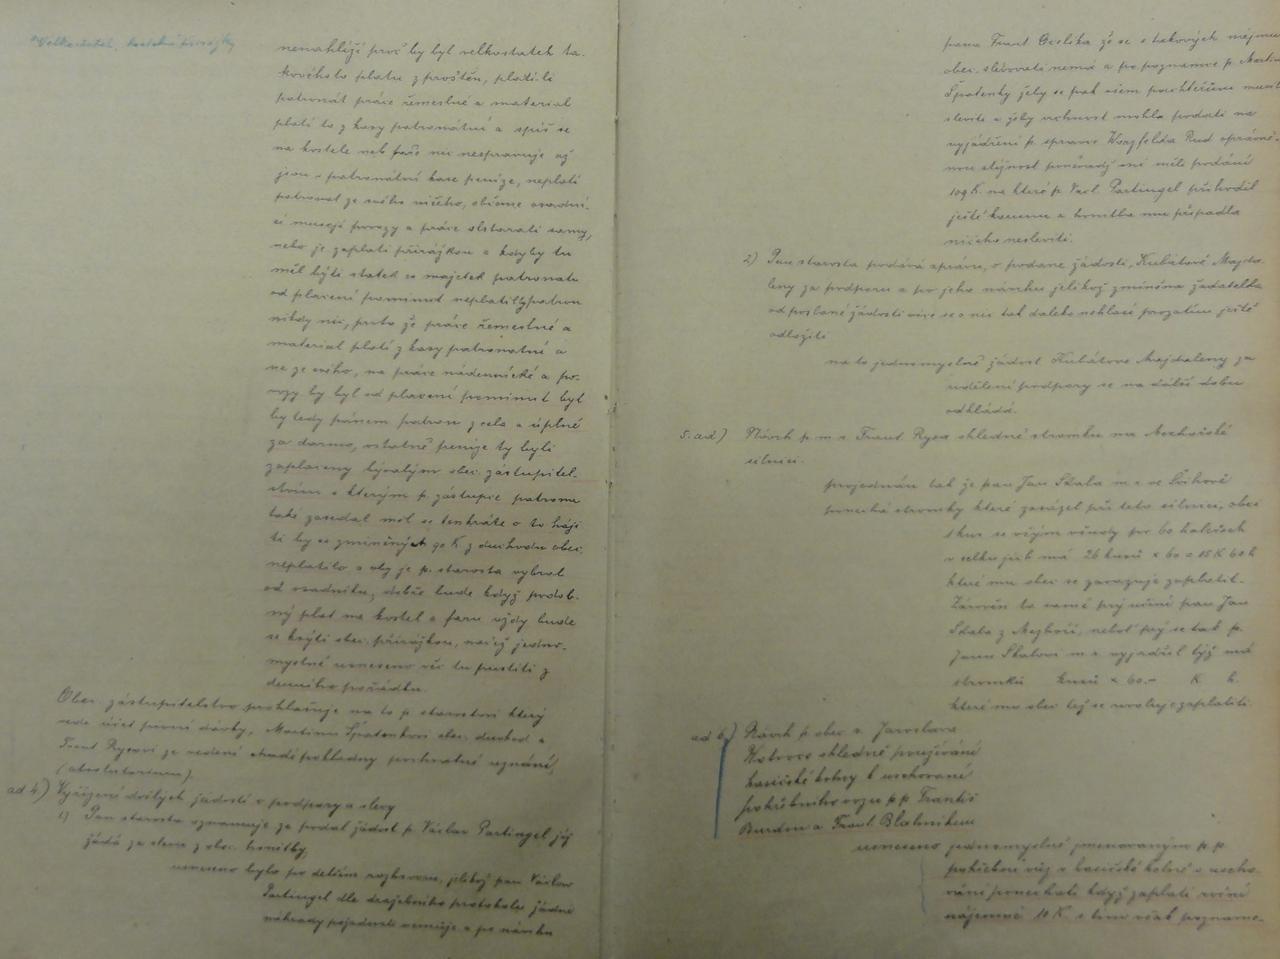 Velkostatek, kostelní přirážky
nenahlíží proč by byl velkostatek ta-
kovéhoto platu zproštěn, platí-li
patronát práce řemeslné a materiál
platí to z kasy patronátní a spíš se
na kostele neb faře nic nespravuje až
jsou v patronátní kase peníze, neplatí
patronát ze svého ničeho, občané osadní-
ci musejí povozy a práce obstarati samy,
nebo je zaplatí přirážkou a kdyby tu
měl býti statek co majetek patronátu
od placení pominut neplatil by patron
nikdy nic, proto že práce řemeslné a
materiál platí z kasy patronátní a
ne ze svého, na práce nádennické a po-
vozy by byl od placení pominut byl
by tedy pánem patron zcela a úplně
za darmo, ostatně peníze ty byli
zaplaceny bývalým obec. zástupitel-
stvím s kterým p. zástupce patrona
také zasedal měl se tenkráte o to háji
ti by se zmíněných 90 K z důchodu obec.
neplatilo a aby je p. starosta vybral
od osadníku, dobře bude když podob-
ný plat na kostel a faru vždy bude
se krýti obec. přirážkou, načež jedno-
myslně usneseno věc tu pustiti z
denního pořádku.
Obec. zástupitelstvo prohlašuje na to p. starostovi který
vede účet první dávky, Martinu Špatenkovi obec. důchod a
Frant Rysovi za vedení chudé pokladny pochvalné uznání,
(absolutorium).
ad 4.) Vyřízení došlých žádostí o podpory a slevy
1) Pan starosta oznamuje že podal žádost p. Václav Partingel jíž
žádá za slevu z obec. honitby,
usneseno bylo po delším rozhovoru, jelikož pan Václav
Partingel dle dražebního protokolu žádné
náhrady požadovati nemůže a po návrhu
pana Frant že se s takových nájmu
obec. slevovati nemá a po poznamce p. Martina
Špatenky žeby se pak všem pachtýřům musilo
sleviti a žeby uchnost mohla podati na
vyjádření p. správce Rud oprávně-
nou stížnost poněvadž oni měli podání
109 K. na které p. Václ. Partingel přihodil
ještě korunu a honitba mu připadla
ničeho nesleviti.
2) Pan starosta podává zprávu, o podané žádosti, Kubátové Majda-
leny za podporu a po jeho návrhu jelikož zmíněná žadatelka
od poslané žádosti více se o nic tak daleko nehlasí prozatím ještě
odložiti
na to jednomyslně žádost Kubátové Majdaleny za
udělení podpory se na další dobu
odkládá.
5. ad) Návrh p. m. s. Frant Rysa ohledně stromku na
silnici.
projednán tak že pan Jan Skala m. s. ve
ponechá stromky které zasázel při této silnici, obci
1 kus se vším všudy po 60 haléřích
v celku jich má 26 kusů × 60 = 15 K 60 h
které mu obec se zavazuje zaplatit.
Zároveň to samé prý učiní pan Jan
Skala z Mezhoří, neboť prý se tak p.
Janu Skalovi m. s. vyjádřil týž má
stromků kusů × 60.- K h.
které mu obec též se uvoluje zaplatiti.
ad 6.) Návrh p. obec. s. Jaroslava
ohledně používání
hasičské kolny k uschování
pohřebního vozu p. p. Františ
Burdu a Frant. Blahníkem
usneseno jednomyslně jmenovaným p. p.
pohřební vůz v hasičské kolně v uscho-
vání ponechati když zaplatí roční
nájemné 10 K. s tím však pozname-